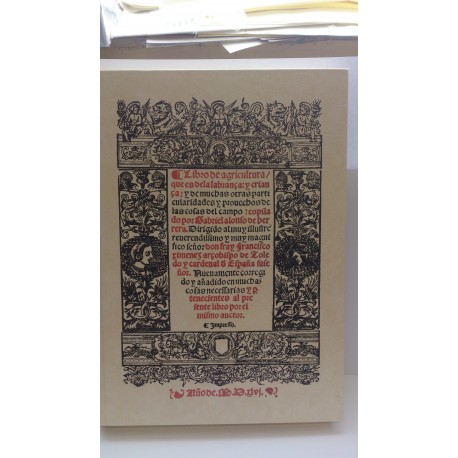 Libro de agricultura/
que es de la labrança: y crian
ça: y de muchas otras parti
cularidades y prouechos de
las cosas del campo: copila
do por Gabriel alonso de her
rera. Dirigido al muy illustre
reuerendissimo y muy magni
fico señor: don fray Francisco
ximenez arçobispo de Tole
do y cardenal d España su se
ñor. Nueuamente corregi
do y añadido en muchas
cosas necessarias
tenecientes al pre
sente libro por el
mismo auctor.
Impresso.
Año de. M. D. xlvj.